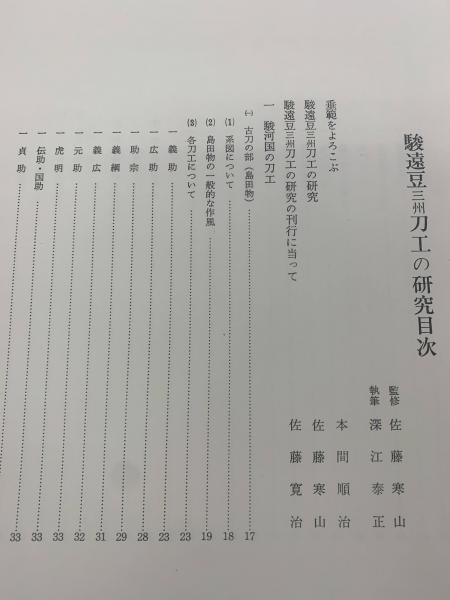 駿遠豆三州刀工の研究目次
監修 佐藤寒山
執筆 深江泰正
垂範をよろこぶ 本間順治
駿遠豆三州刀工の研究 佐藤寒山
駿遠豆三州刀工の研究の刊行に当って 佐藤寛治
一 駿河国の刀工
㈠ 古刀の部(島田物) 17
⑴ 系図について 18
⑵ 島田物の一般的な作風 19
⑶ 各刀工について 23
一 義助 23
一 広助 28
一 助宗 29
一 義綱 31
一 義広 32
一 元助 33
一 虎明 33
一 伝助・国助 33
一 貞助